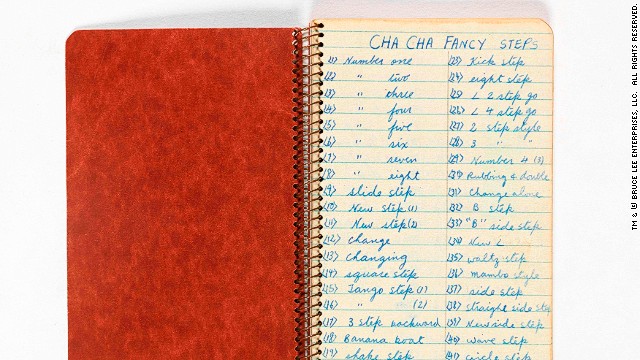 CHA CHA FANCY STEPS
(1) Number one
(2) " two
(3) " three
(4) " four
(5) " five
(6) " six
(7) " seven
(8) " eight
(9) slide step
(10) New step (1)
(11) New step (2)
(12) change
(13) changing
(14) square step
(15) Tango step (1)
(16) " (2)
(17) 3 step backward
(18) Banana boat
(19) shake step
(23) Kick step
(24) eight step
(25) L 2 step go
(26) L 4 step go
(27) 2 step style
(28) 3 " "
(29) Number 4 (3)
(30) Rubbing & double
(31) Change alone
(32) B step
(33) "B" side step
(34) New L
(35) waltz step
(36) mambo style
(37) side step
(38) straight side step
(39) New side step
(40) wave step
(41) circle step
TM & © BRUCE LEE ENTERPRISES, LLC. ALL RIGHTS RESERVED.